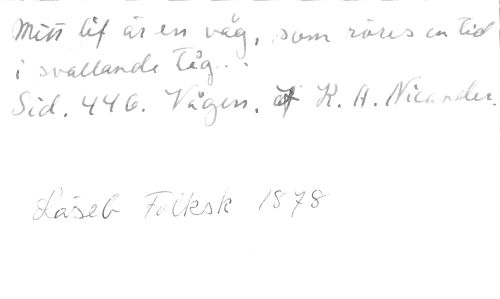 Mitt lif är en våg, som röres en tid
i svallande tåg..
Sid. 446. Vågen. af K. A. Nicander.
Läseb Folksk 1878